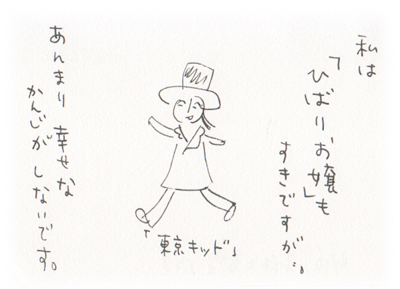 私は
「ひばりお嬢」も
すきですが…。
「東京キッド」
あんまり幸せな
かんじがしないです。